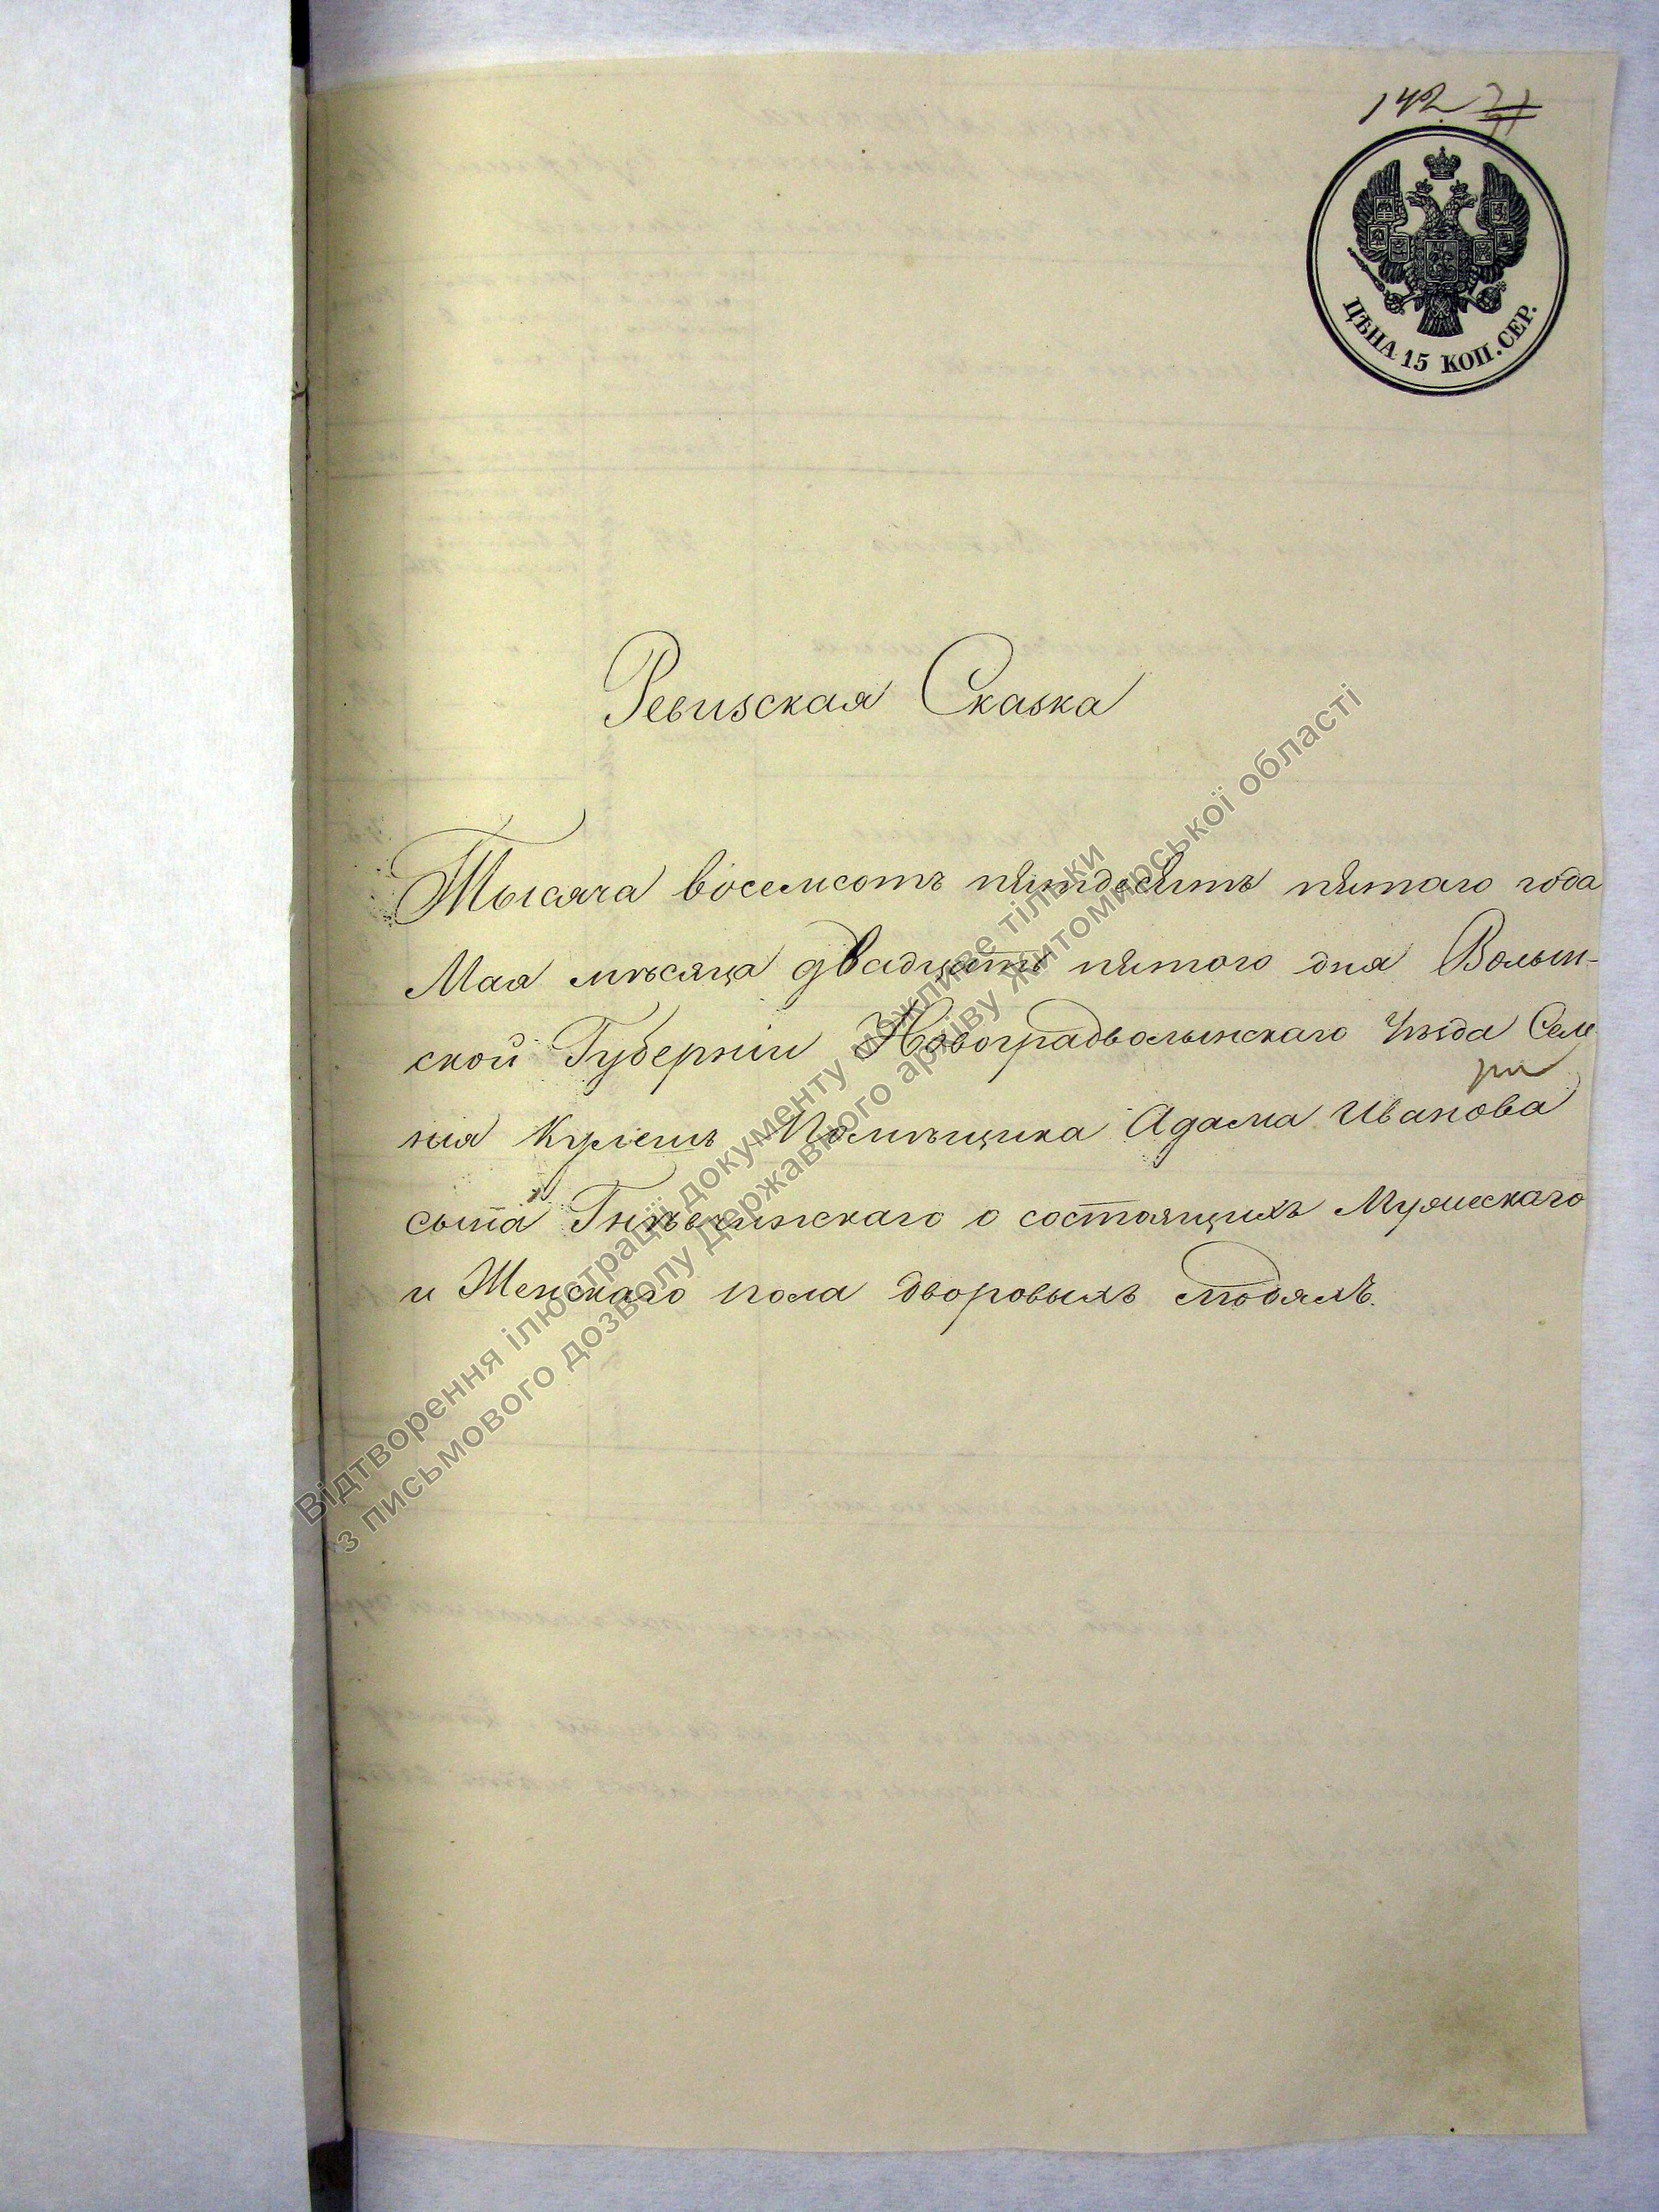 142
ЦѢНА 15 КОП. СЕР.
Ревизская Сказка
Тысяча восемсотъ пятдесятъ пятаго года
Мая мѣсяца двадцать пятого дня Волын-
ской Губерніи Новоградволынскаго Уѣзда Селе
нія Помѣщика Адама Иванова
сына о состоящихъ Мужескаго
и Женскаго пола дворовыхъ людяхъ.
Відтворення ілюстрації документу можливе тільки
з письмового дозволу Державного архіву Житомирської області